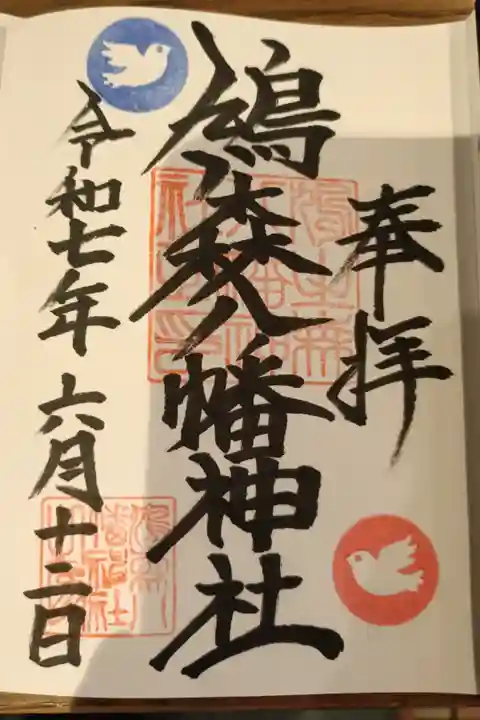 奉拝
鳩森八幡神社
令和七年六月十二日